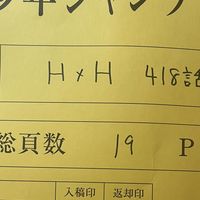 少年ジャンプ
H×H 418話
総頁数 19 P
入稿印 返却印